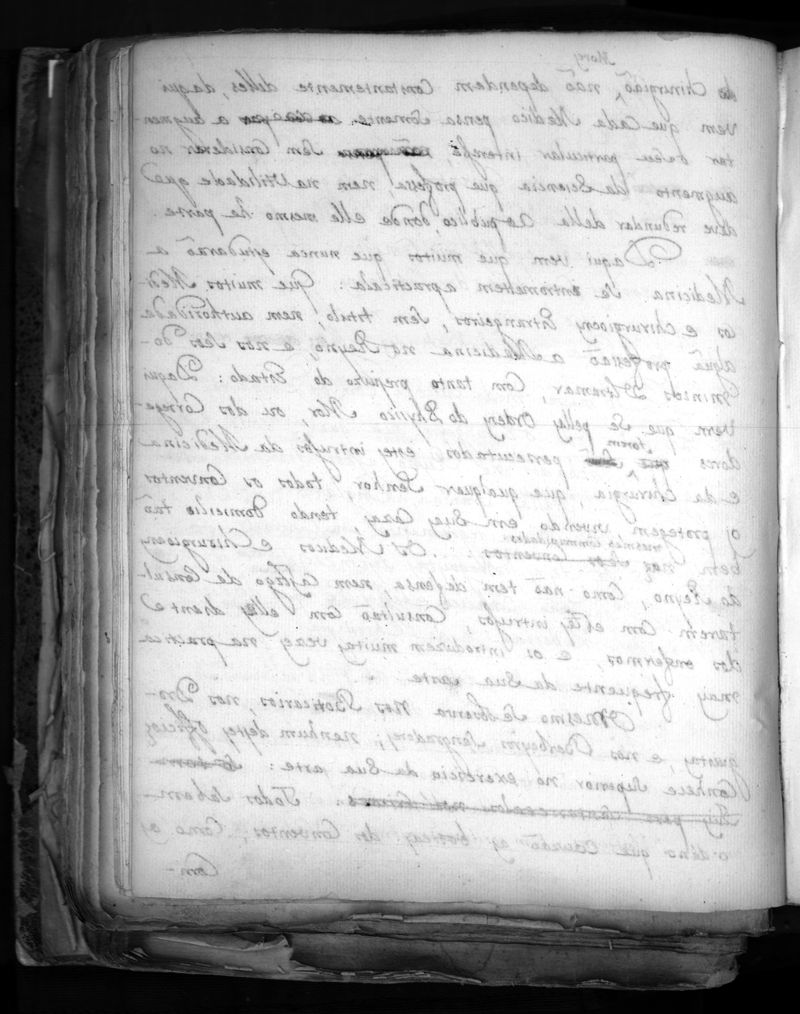 Mor,
do Chirurgião, não dependem Constantemente delles, daqui
vem que Cada Medico pensa somente a augmen-
tar o seu particular interesse, sem Considerar no
augmento da Sciencia que professa, nem na Utilidade que
deve redundar della ao publico, donde elle mesmo he parte.
Daqui vem que muitos que nunca estudaraõ a
Medicina se entrometem a practicala: Que muitos Medi-
cos e chirurgioens Estrangeiros, sem titulo, nem authoridade
algũa professaõ a Medicina no Reyno, e nos seos Do-
minios Ultramar, Com tanto prejuizo do Estado: Daqui
vem que se pellas Ordens do Physico Mor, ou dos Correge-
dores forem persecutados estes intrusos da Medicina
e da Chirurgia, que qualquer Senhor, todos os Conventos
os protegem, vivendo em suas Cazas, tendo Domicilio taõ
bem nas mesmas Communidades: Os Medicos e Chirurgioens
do Reyno, Como naõ tem defensa, nem Castigo de Consul-
tarem Com estes intrusos, Consultaõ Com elles diante
dos enfermos, e os introduzem muitas vezes na practica
mas frequente da Sua arte.
Mesmo Se observa nos Boticarios, nos Dro-
guistas, e nos Barbeyros Sangradores; nenhum destes officios
Conhece Superior no exercicio da Sua arte:
Todos Sabem
o dano que Causaõ as boticas dos Conventos, Como os
Com-